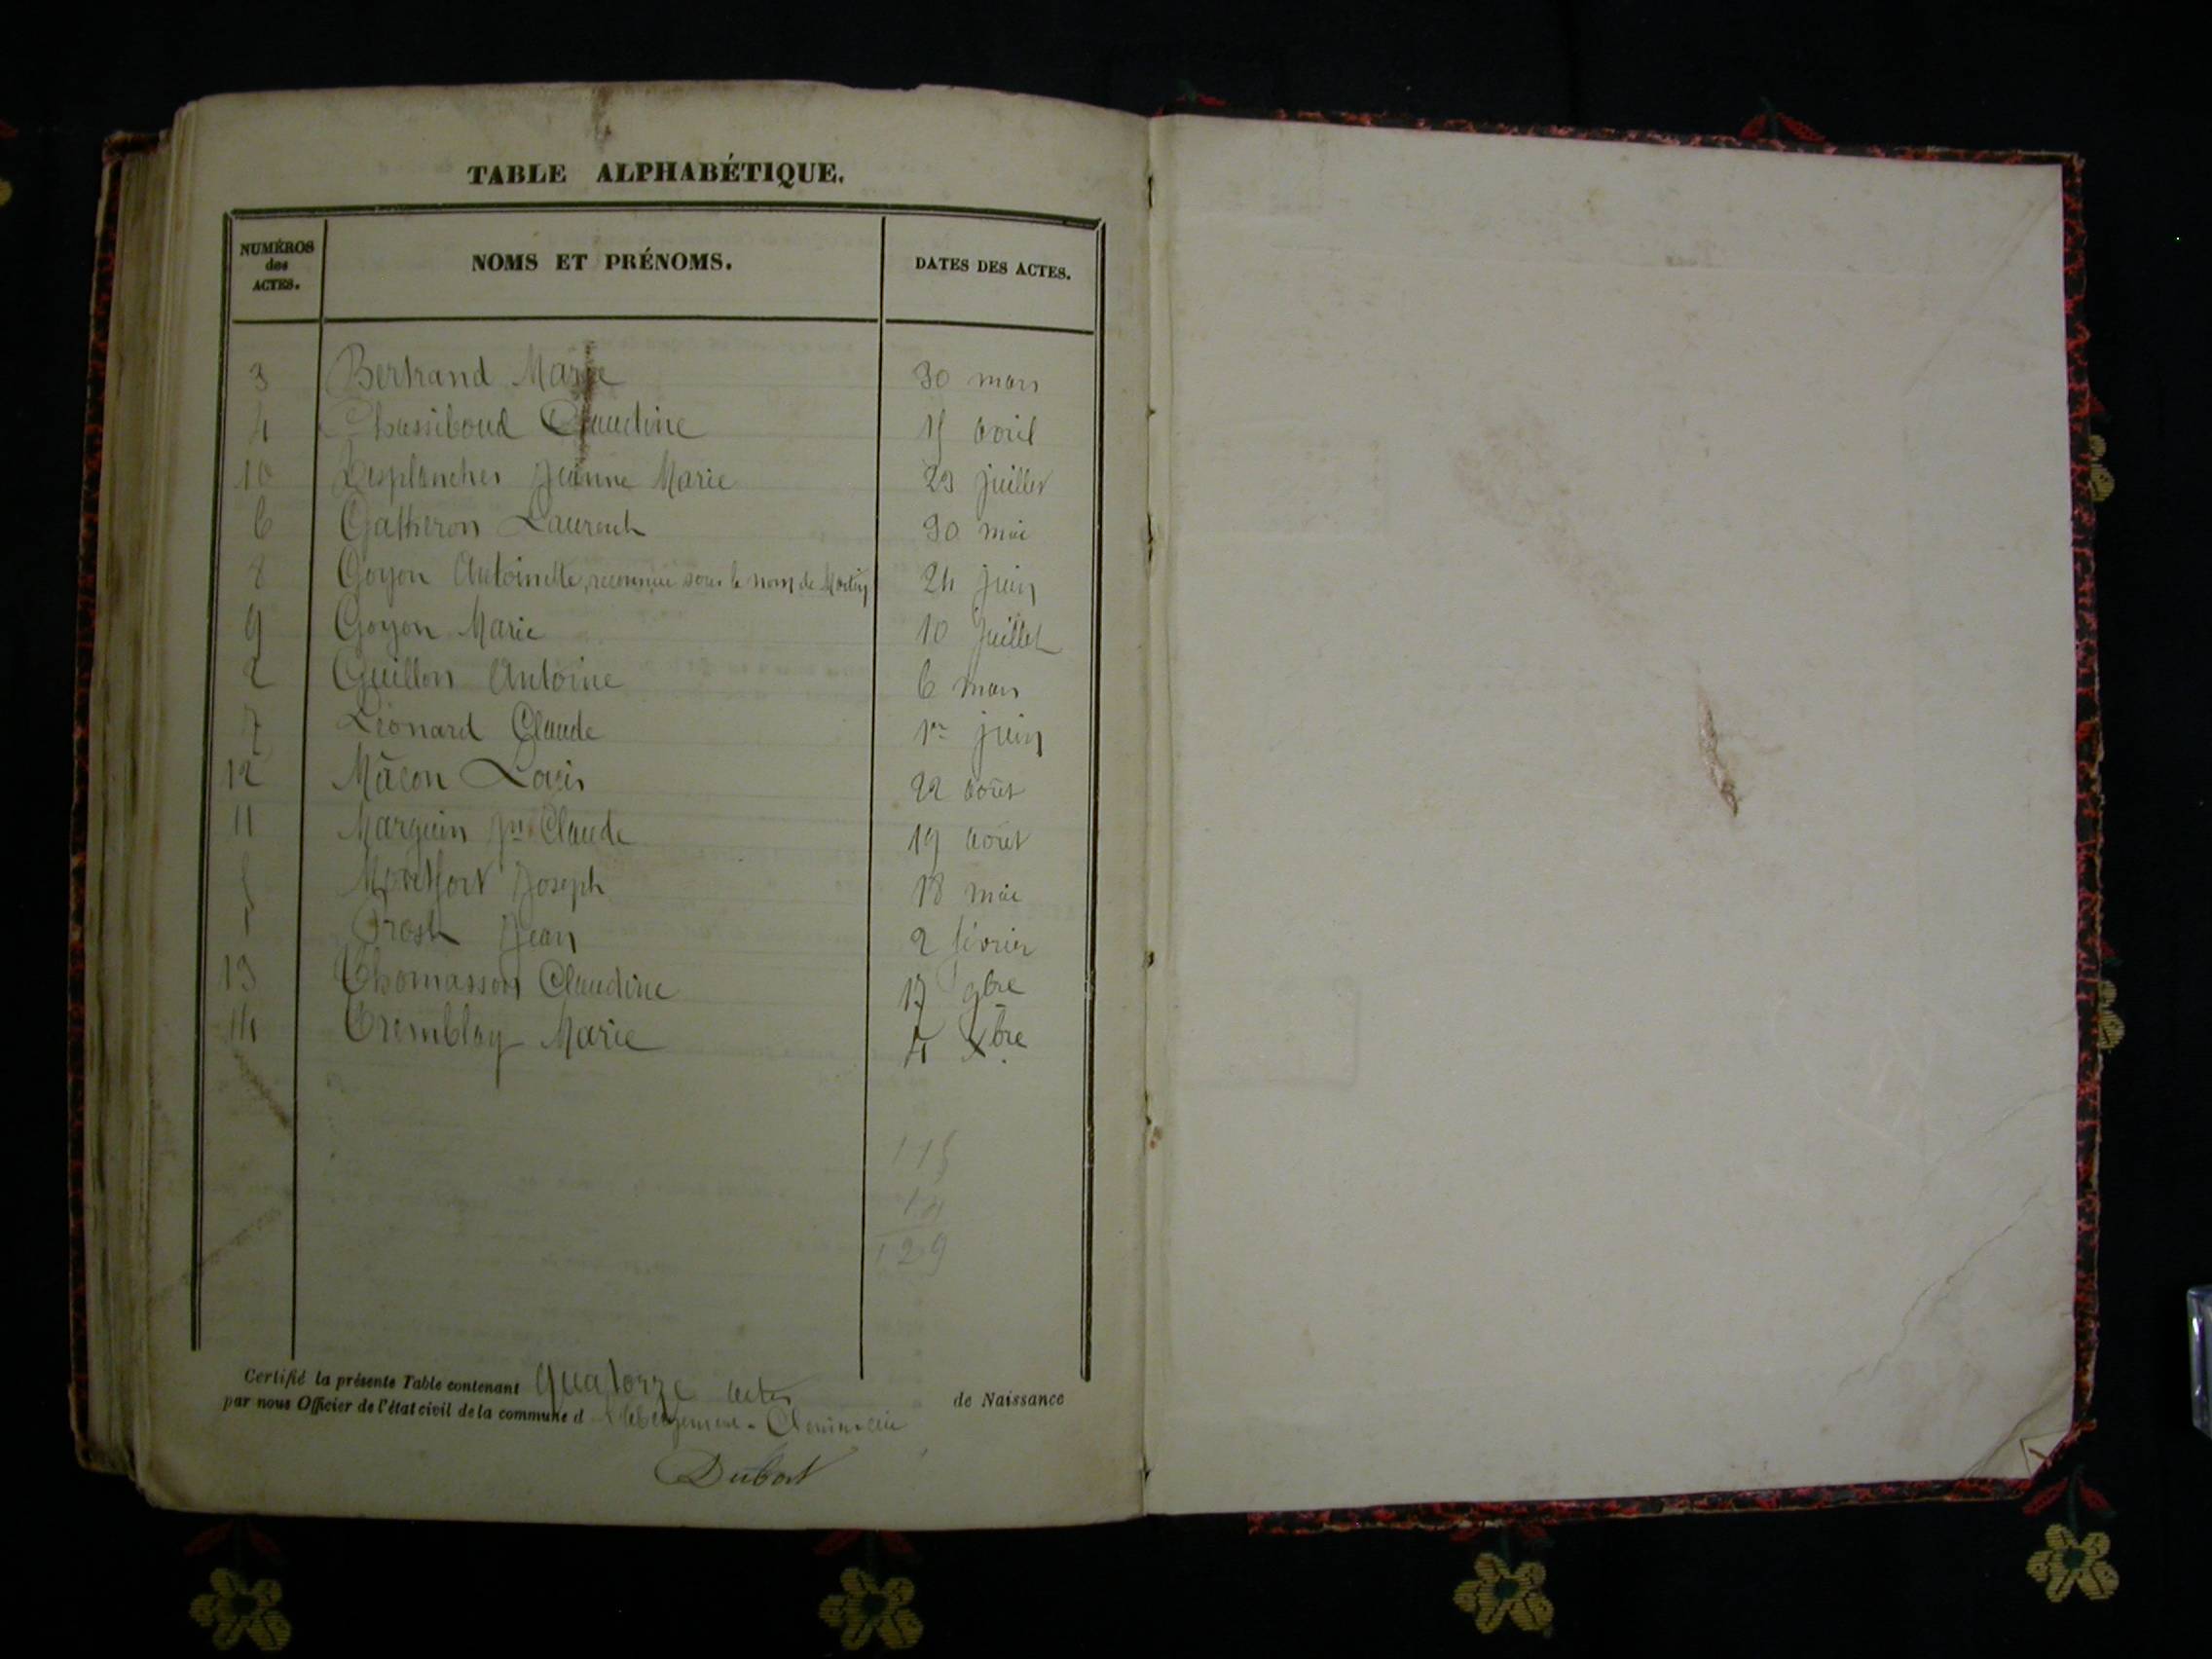 TABLE ALPHABÉTIQUE.
NUMÉROS des ACTES. NOMS ET PRÉNOMS. DATES DES ACTES.
3 Bertrand Marie 30 mars
4 Chassiboud Claudine 15 avril
10 Desplanches Jeanne Marie 23 juillet
6 Gatheron Laurent 30 mai
8 Goyon Antoinette, reconnue sous le nom de Martin 24 juin
9 Goyon Marie 10 juillet
2 Guillon Antoine 6 mars
7 Léonard Claude 1er juin
12 Mâcon Louis 22 août
11 Marguin Jn Claude 19 août
5 Montfort Joseph 18 mai
1 Prost Jean 2 février
13 Thomasson Claudine 17 9bre
14 Tremblay Marie 4 Xbre
115
14
129
Certifié la présente Table contenant quatorze actes de Naissance
par nous Officier de l'état civil de la commune d
Dubost